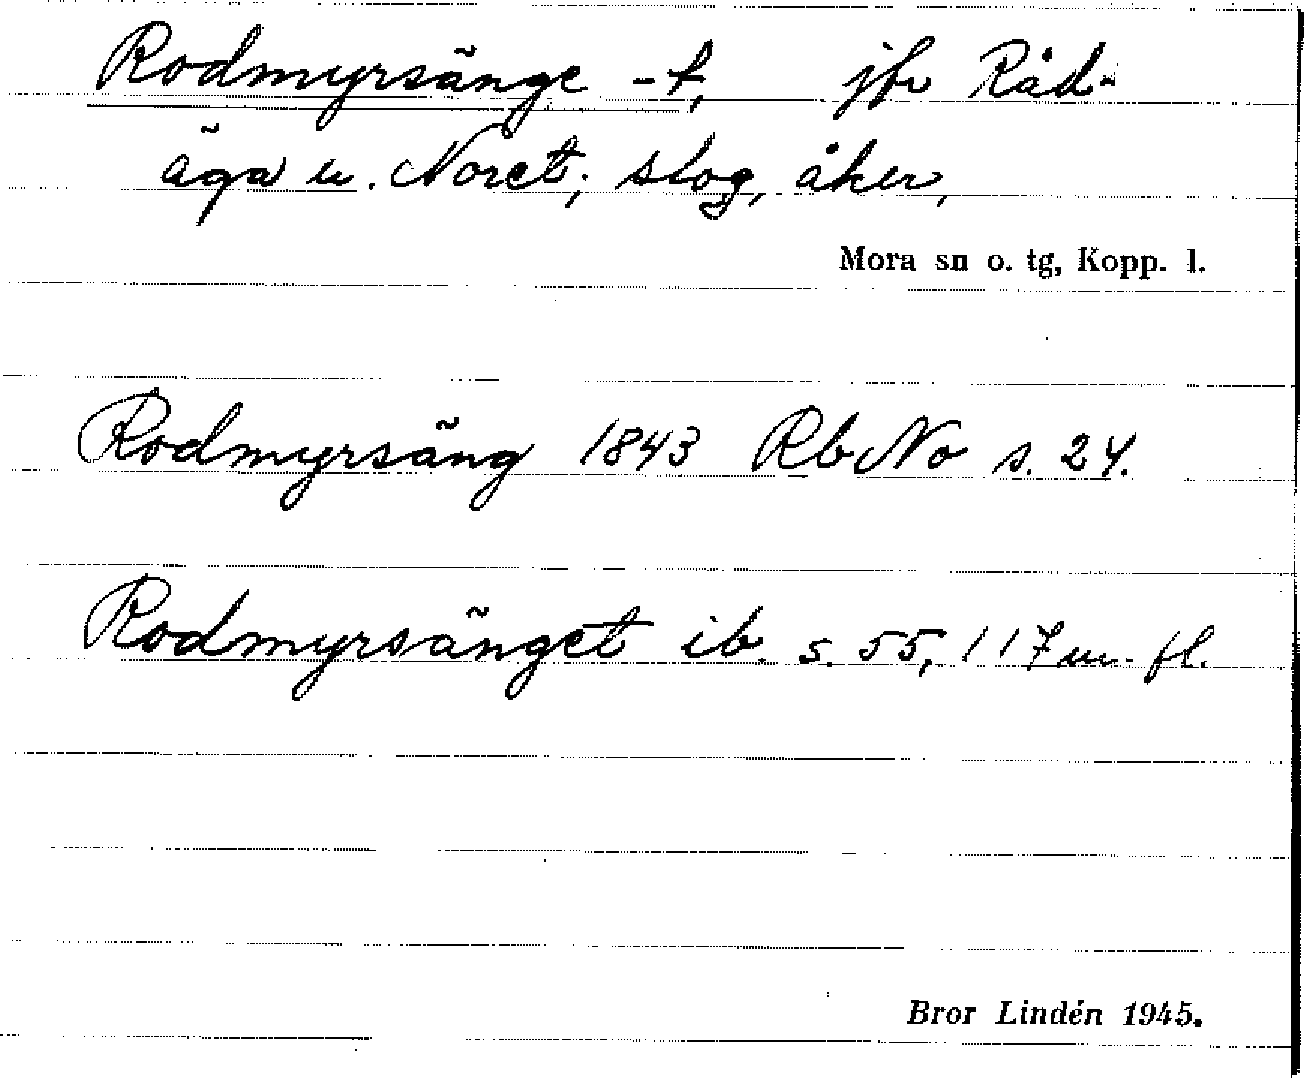 Rodmyrsänge -t, jfr Råd-
äga u. Noret; slog, åker,
Mora sn o. tg, Kopp. l.
Rodmyrsäng 1843 RbNo s. 24.
Rodmyrsänget ib. s. 55, 117 m. fl.
Bror Lindén 1945.